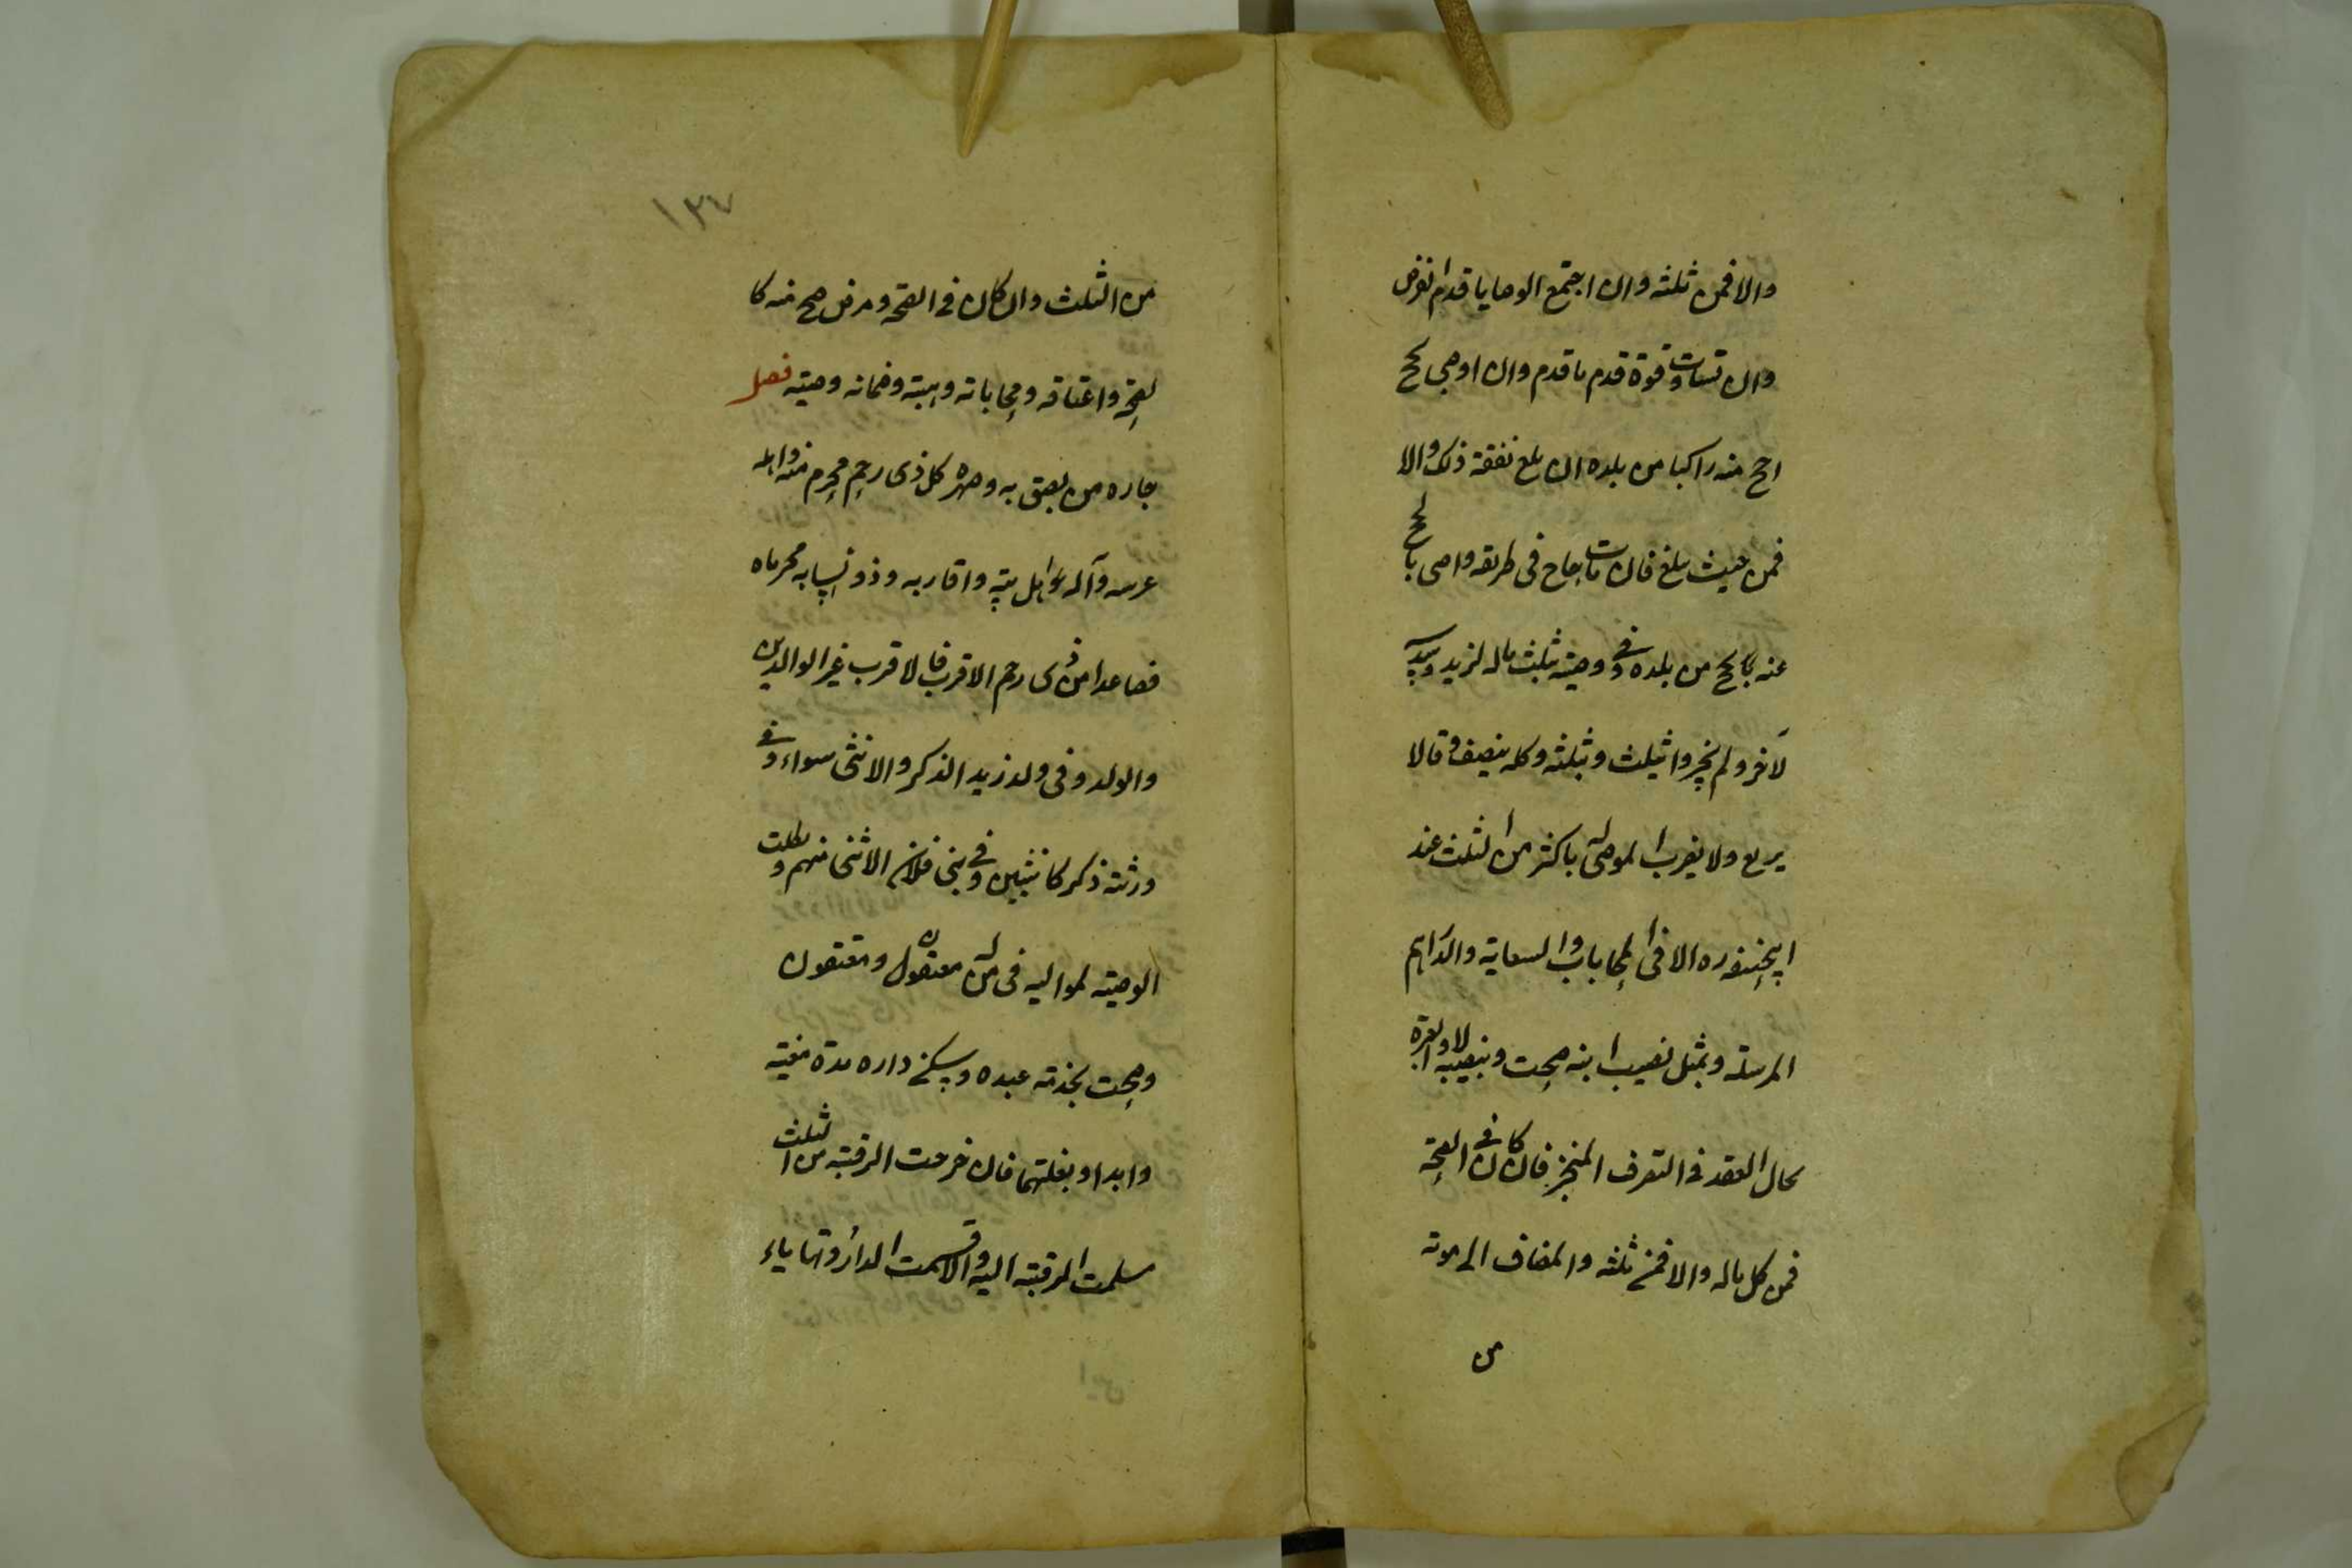 والا فمن ثلثه وان اجتمع الوصايا قدم الفرض
وان تساوت قوة قدم ما قدم وان اوصى بحج
احج عنه راكبا من بلده ان بلغ نفقة ذلك والا
فمن حيث يبلغ فان مات حاج في طريقه واوصى بالحج
عنه يحج من بلده وفي وصيته بثلث ماله لزيد وسدسه
لآخر ولم يجيزوا يثلث وبثلثه وكله ينصف وقالا
يربع ولا يضرب الموصى له باكثر من الثلث عند
ابيحنيفه ره الا في المحاباة والسعاية والدراهم
المرسلة وبمثل نصيب ابنه صحت وبنصيبه لا والعبرة
لحال العقد في التصرف المنجز فان كان في الصحة
فمن كل ماله والا فمن ثلثه والمضاف الى موته
من
١٣٧
من الثلث وان كان في الصحة ومرض صح منه كا
لصحة واعتاقه ومحاباته وهبته وضمانه وصيته فصل
جاره من لصق به وصهره كل ذي رحم محرم منه واهله
عرسه وآله اهل بيته واقاربه وذو انسابه محرماه
فصاعدا من ذي رحم الاقرب فالاقرب غير الوالدين
والولد وفي ولد زيد الذكر والانثى سواء وفي
ورثته ذكر كانثيين وفي بني فلان الانثى منهم وبطلت
الوصية لمواليه في من له معتقون ومعتقون
وصحت بخدمة عبده وسكنى داره مدة معينة
وابدا وبغلتهما فان خرجت الرقبة من الثلث
سلمت الرقبة اليه والا قسمت الدار وتهاياء